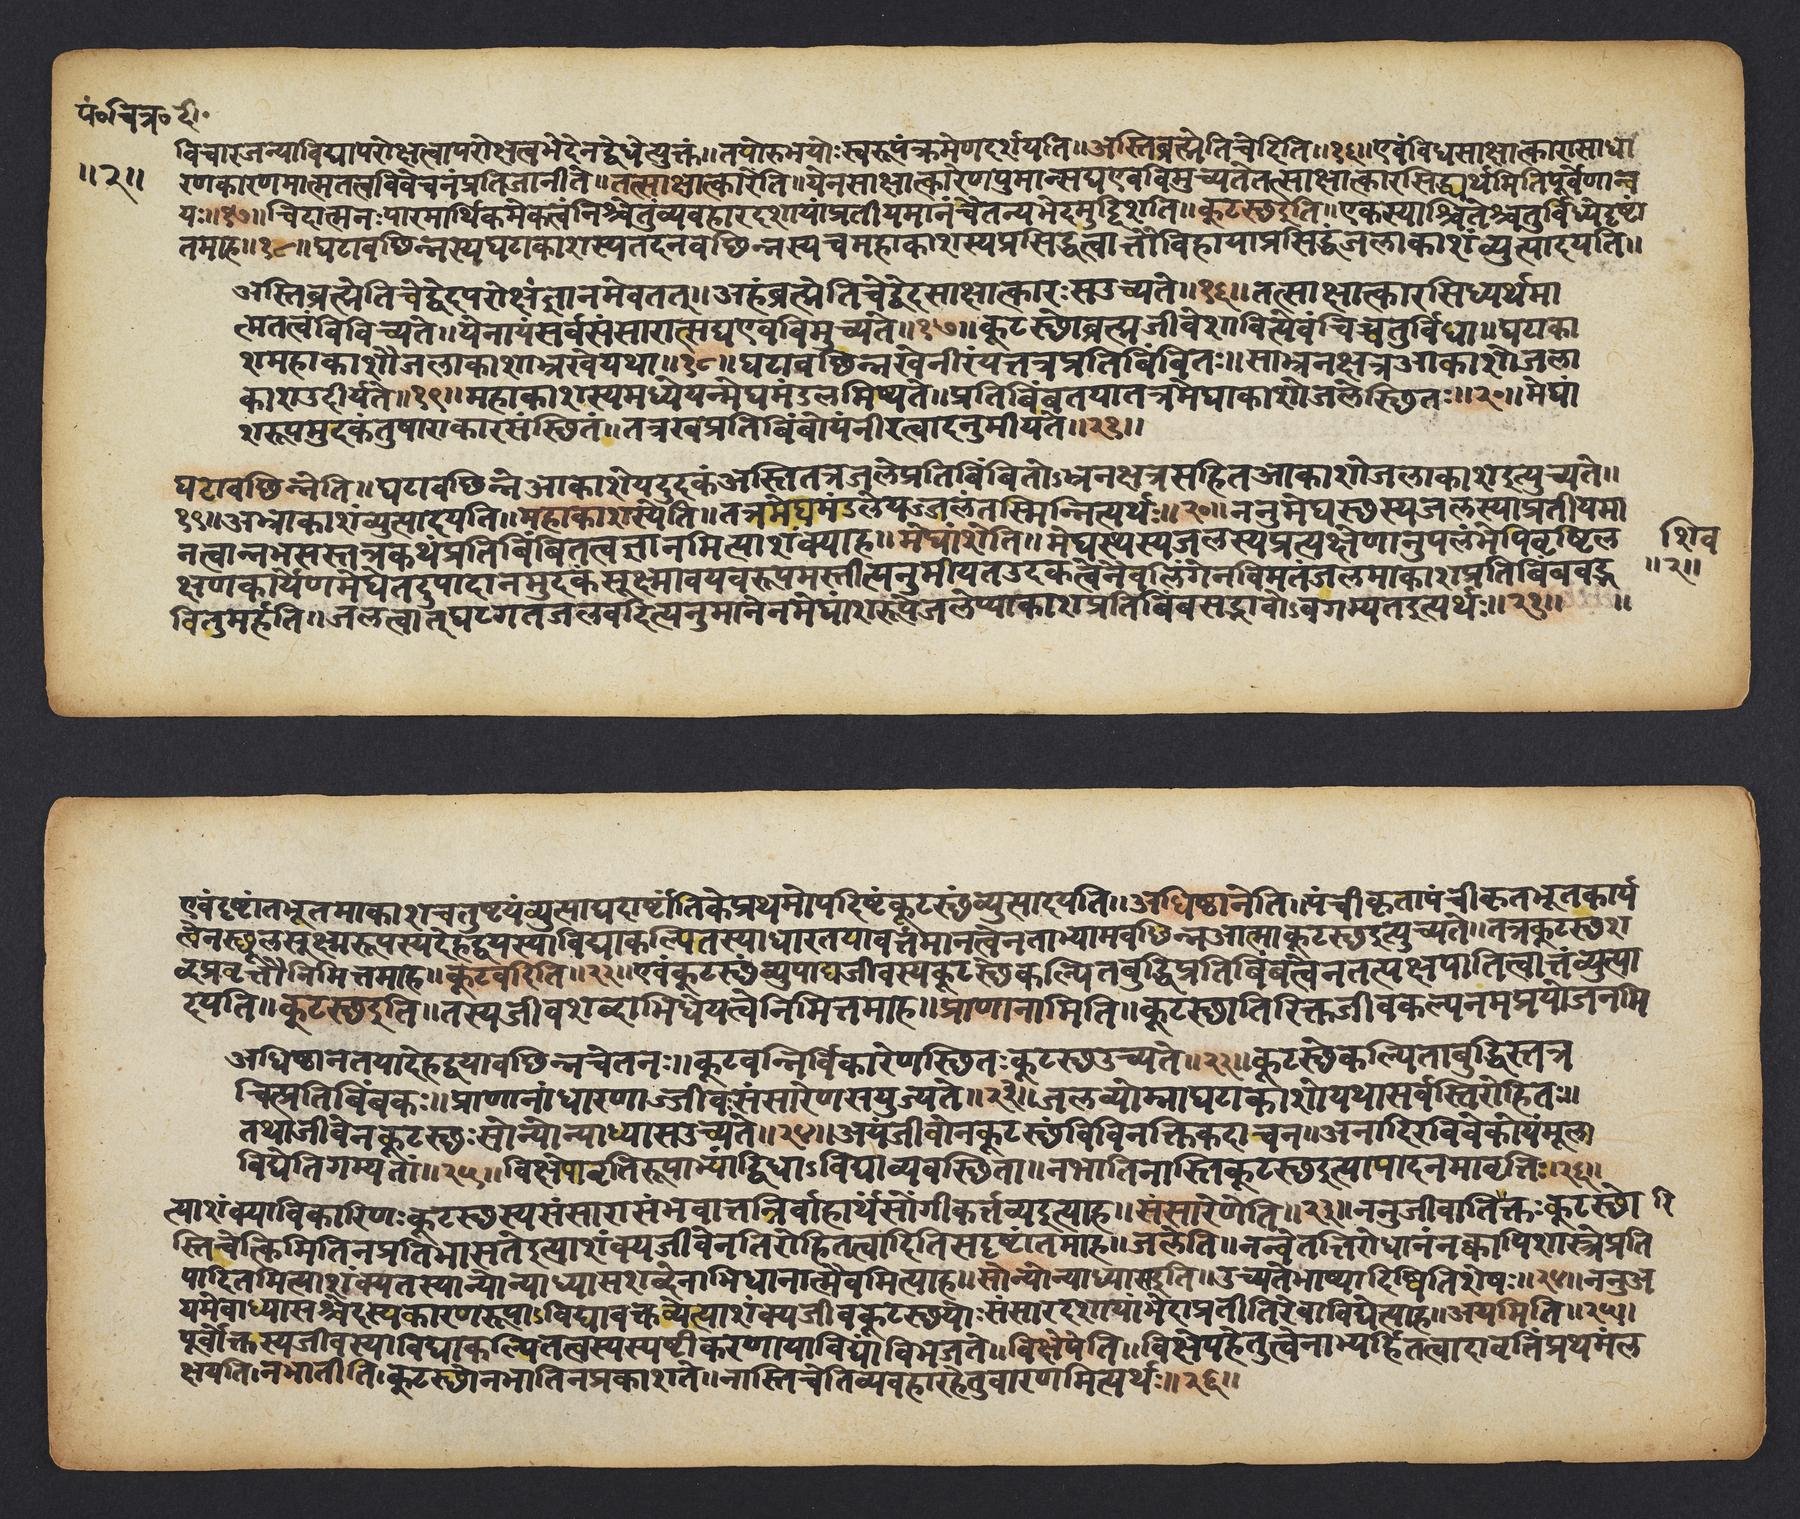 पं॰चित्र॰दी॰
॥२॥
विचारजन्याविद्यापरोक्षत्वापरोक्षत्वभेदेनद्वेधेत्युक्तं॥तयोरुभयोःस्वरूपंक्रमेणदर्शयति॥अस्तिब्रह्मेतिचेदिति॥१६॥एवंविधसाक्षात्कारासाधा
रणकारणमात्मतत्वविवेचनंप्रतिजानीते॥तत्साक्षात्कारेति॥येनसाक्षात्कारेणपुमान्सद्यएवविमुच्यतेतत्साक्षात्कारसिद्ध्यर्थमितिपूर्वेणान्व
यः॥१७॥चिदात्मनःपारमार्थिकमेकत्वंनिश्चेतुंव्यवहारदशायांप्रतीयमानंचैतन्यभेदमुद्दिशति॥कूटस्थइति॥एकस्याश्चितेश्चतुर्विध्येदृष्टां
तमाह॥१८॥घटावछिन्नस्यघटाकाशस्यतदनवछिन्नस्यचमहाकाशस्यप्रसिद्धत्वात्तौविहायाप्रसिद्धंजलाकाशंव्युत्पादयति॥
अस्तिब्रह्मेतिचेद्वेदपरोक्षंज्ञानमेवतत्॥अहंब्रह्मेतिचेद्वेदसाक्षात्कारःसउच्यते॥१६॥तत्साक्षात्कारसिध्यर्थमा
त्मतत्वंविविच्यते॥येनायंसर्वसंसारात्सद्यएवविमुच्यते॥१७॥कूटस्थोब्रह्मजीवेशावित्येवंचिच्चतुर्विधा॥घटाका
शमहाकाशौजलाकाशाभ्रखेयथा॥१८॥घटावछिन्नखेनीरंयत्तत्रप्रतिबिंबितः॥साभ्रनक्षत्रआकाशोजला
काशउदीर्यते॥१९॥महाकाशस्यमध्येयन्मेघमंडलमिष्यते॥प्रतिबिंबतयातत्रमेघाकाशोजलेस्थितः॥२०॥मेघां
शरूपमुदकंतुषाराकारसंस्थितं॥तत्रखप्रतिबिंबोयंनीरत्वादनुमीयते॥२१॥
घटावछिन्नेति॥घटावछिन्नेआकाशेयदुदकंअस्तितत्रजलेप्रतिबिंबितोऽभ्रनक्षत्रसहितआकाशोजलाकाशइत्युच्यते॥
१९॥अभ्राकाशंव्युत्पादयति॥महाकाशस्येति॥तत्रमेघमंडलेयज्जलंतस्मिन्नित्यर्थः॥२०॥ननुमेघस्थस्यजलस्याप्रतीयमा
नत्वान्नभसस्तत्रकथंप्रतिबिंबितत्वज्ञानमित्याशंक्याह॥मेघांशेति॥मेघस्थस्यजलस्यप्रत्यक्षेणानुपलंभेपिवृष्टिल
क्षणकार्येणमेघेतदुपादानमुदकंसूक्ष्मावयवरूपमस्तीत्यनुमीयतउदकत्वेनैवलिंगेनविमतंजलमाकाशप्रतिबिंबवद्भ
वितुमर्हति॥जलत्वात्घटगतजलवदित्यनुमानेनमेघांशरूपेजलेप्याकाशप्रतिबिंबसद्भावोऽवगम्यतइत्यर्थः॥२१॥ ॥
शिव
॥२॥
एवंदृष्टांतभूतमाकाशचतुष्टयंव्युत्पाद्यदार्ष्टांतिकेप्रथमोपदिष्टंकूटस्थंव्युत्पादयति॥अधिष्ठानेति॥पंचीकृतापंचीकृतभूतकार्य
त्वेनस्थूलसूक्ष्मरूपस्यदेहद्वयस्याविद्याकल्पितस्याधारतयावर्त्तमानत्वेनताभ्यामवछिन्नआत्माकूटस्थइत्युच्यते॥तत्रकूटस्थश
ब्दप्रवृत्तौनिमित्तमाह॥कूटवदिति॥२२॥एवंकूटस्थंव्युपाद्यजीवस्यकूटस्थेकल्पितबुद्धिप्रतिबिंबत्वेनतत्पक्षपातित्वात्तंव्युत्पा
दयति॥कूटस्थइति॥तस्यजीवशब्दाभिधेयत्वेनिमित्तमाह॥प्राणानामिति॥कूटस्थातिरिक्तजीवकल्पनमप्रयोजनमि
अधिष्ठानतयादेहद्वयावछिन्नचेतनः॥कूटवन्निर्विकारेणस्थितःकूटस्थउच्यते॥२२॥कूटस्थेकल्पिताबुद्धिस्तत्र
चित्प्रतिबिंबकः॥प्राणानांधारणाज्जीवःसंसारेणसयुज्यते॥२३॥जलव्योम्नाघटाकाशोयथासर्वस्तिरोहितः॥
तथाजीवेनकूटस्थःसोन्योन्याध्यासउच्यते॥२४॥अयंजीवोनकूटस्थंविविनक्तिकदाचन॥अनादिरविवेकोयंमूला
विद्येतिगम्यतां॥२५॥विक्षेपावृतिरूपाभ्यांद्विधाऽविद्याव्यवस्थिता॥नभातिनास्तिकूटस्थइत्यापादनमावृत्तिः॥२६॥
त्याशंक्याविकारिणःकूटस्थस्यसंसारासंभवात्तन्निर्वाहार्थंसोंगीकर्त्तव्यइत्याह॥संसारेणेति॥२३॥ननुजीवातिक्तःकूटस्थो रि
स्तिचेत्किमितिनप्रतिभासतेइत्याशंक्यजीवेनतिरोहितत्वादितिसदृष्टांतमाह॥जलेति॥नन्वेतत्तिरोधानंनक्वापिशास्त्रेप्रति
पादितमित्याशंक्यतस्यान्योन्याध्यासशब्देनाभिधानान्मैवमित्याह॥सोन्योन्याध्यासइति॥उच्यतेभाष्यादिष्वितिशेषः॥२४॥ननुअ
यमेवाध्यासश्चेदस्यकारणरूपाऽविद्यावक्तव्येत्याशंक्यजीवकूटस्थयोःसंसारदशायांभेदाप्रतीतिरेवाविद्येत्याह॥अयमिति॥२५॥
पूर्वोक्तस्यजीवस्याविद्याकल्पितत्वस्यस्पष्टीकरणायाविद्यांविभजते॥विक्षेपेति॥विक्षेपहेतुत्वेनाभ्यर्हितत्वादावृत्तिंप्रथमंल
क्षयति।नभातीति।कूटस्थोनभातिनप्रकाशते॥नास्तिचेतिव्यवहारहेतुवारणमित्यर्थः॥२६॥